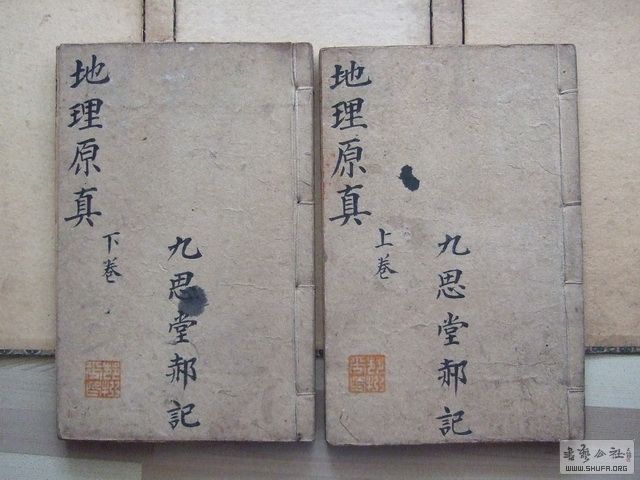 地理原真
上卷
九思堂郝記
地理原真
下卷
九思堂郝記
書藝公社
WWW.SHUFA.ORG